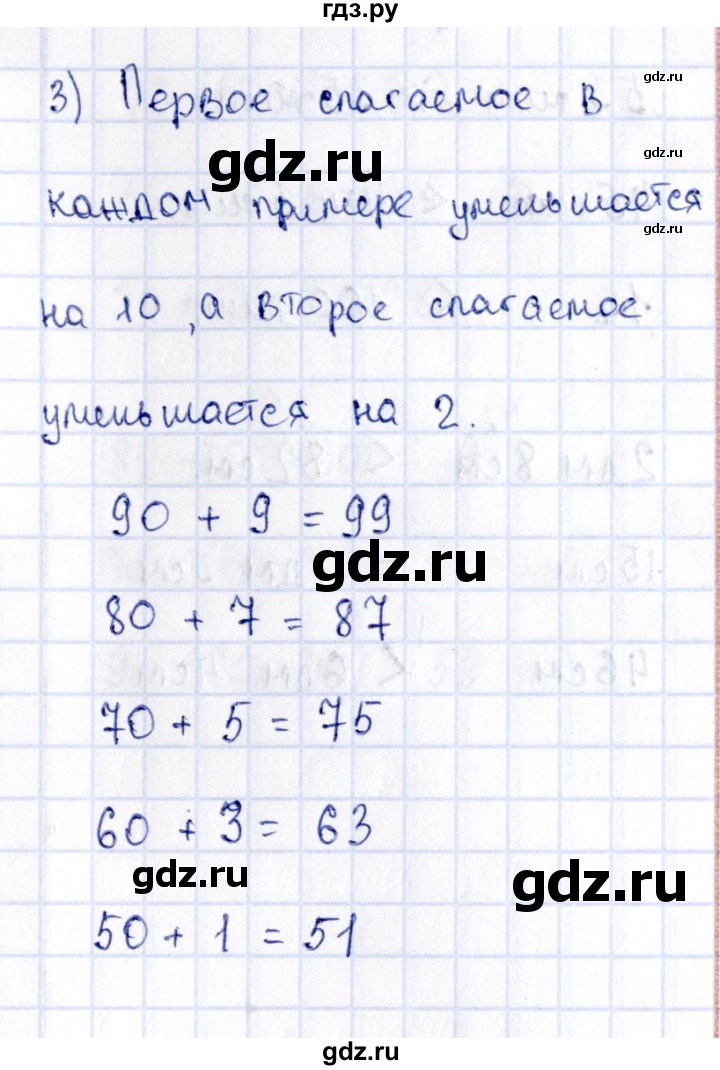 гдз.ру
gdz.ru
3) Первое слагаемое в
gdz.ru
gdz.ru
каждом примере уменьшается
gdz.ru
на 10, а второе слагаемое
уменьшается на 2.
90 + 9 = 99
gdz.ru
80 + 7 = 87
70 + 5 = 75
60 + 3 = 63
gdz.ru
gdz.ru
50 + 1 = 51
gdz.ru